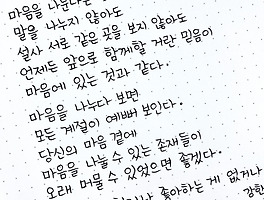 마음을 나눈다는
말을 나누지 않아도
설사 서로 같은 곳을 보지 않아도
언제든 앞으로 함께할 거란 믿음이
마음에 있는 것과 같다.
마음을 나누다 보면
모든 계절이 예뻐 보인다.
당신의 마음 곁에
마음을 나눌 수 있는 존재들이
오래 머물 수 있었으면 좋겠다.
좋아하는 게 없거나
강한